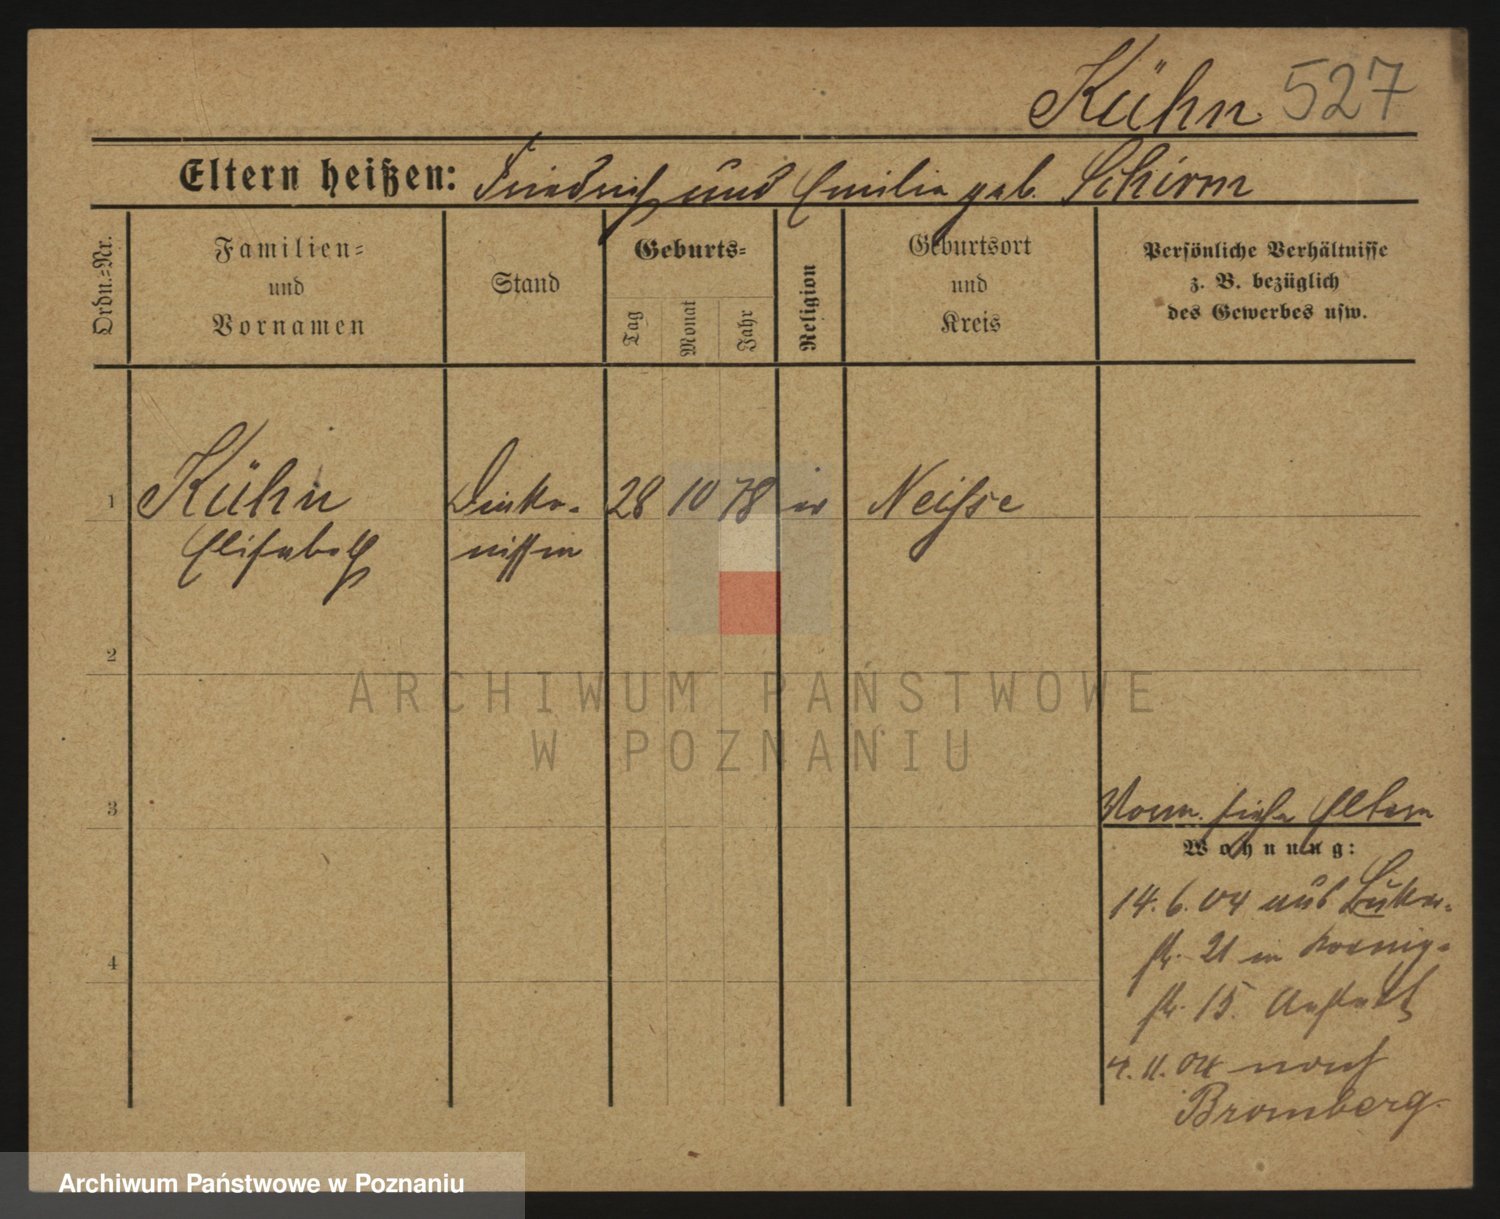 Kühn 527
Eltern heißen: Friedrich und Emilie geb. Schirm
Ordn.=Nr.
Familien=
und
Vornamen
Stand
Geburts=
Tag
Monat
Jahr
Religion
Geburtsort
und
Kreis
Persönliche Verhältnisse
z. B. bezüglich
des Gewerbes usw.
1 Kühn Diako- 28 10 78 ev Neisse
Elisabeth nissin
2
3
4
ARCHIWUM PAŃSTWOWE
W POZNANIU
Vorm. siehe Eltern
Wohnung:
14. 6. 04 aus
str. 21 in Koenig-
str. 15. Anstalt
4. 11. 04 nach
Bromberg.
Archiwum Państwowe w Poznaniu